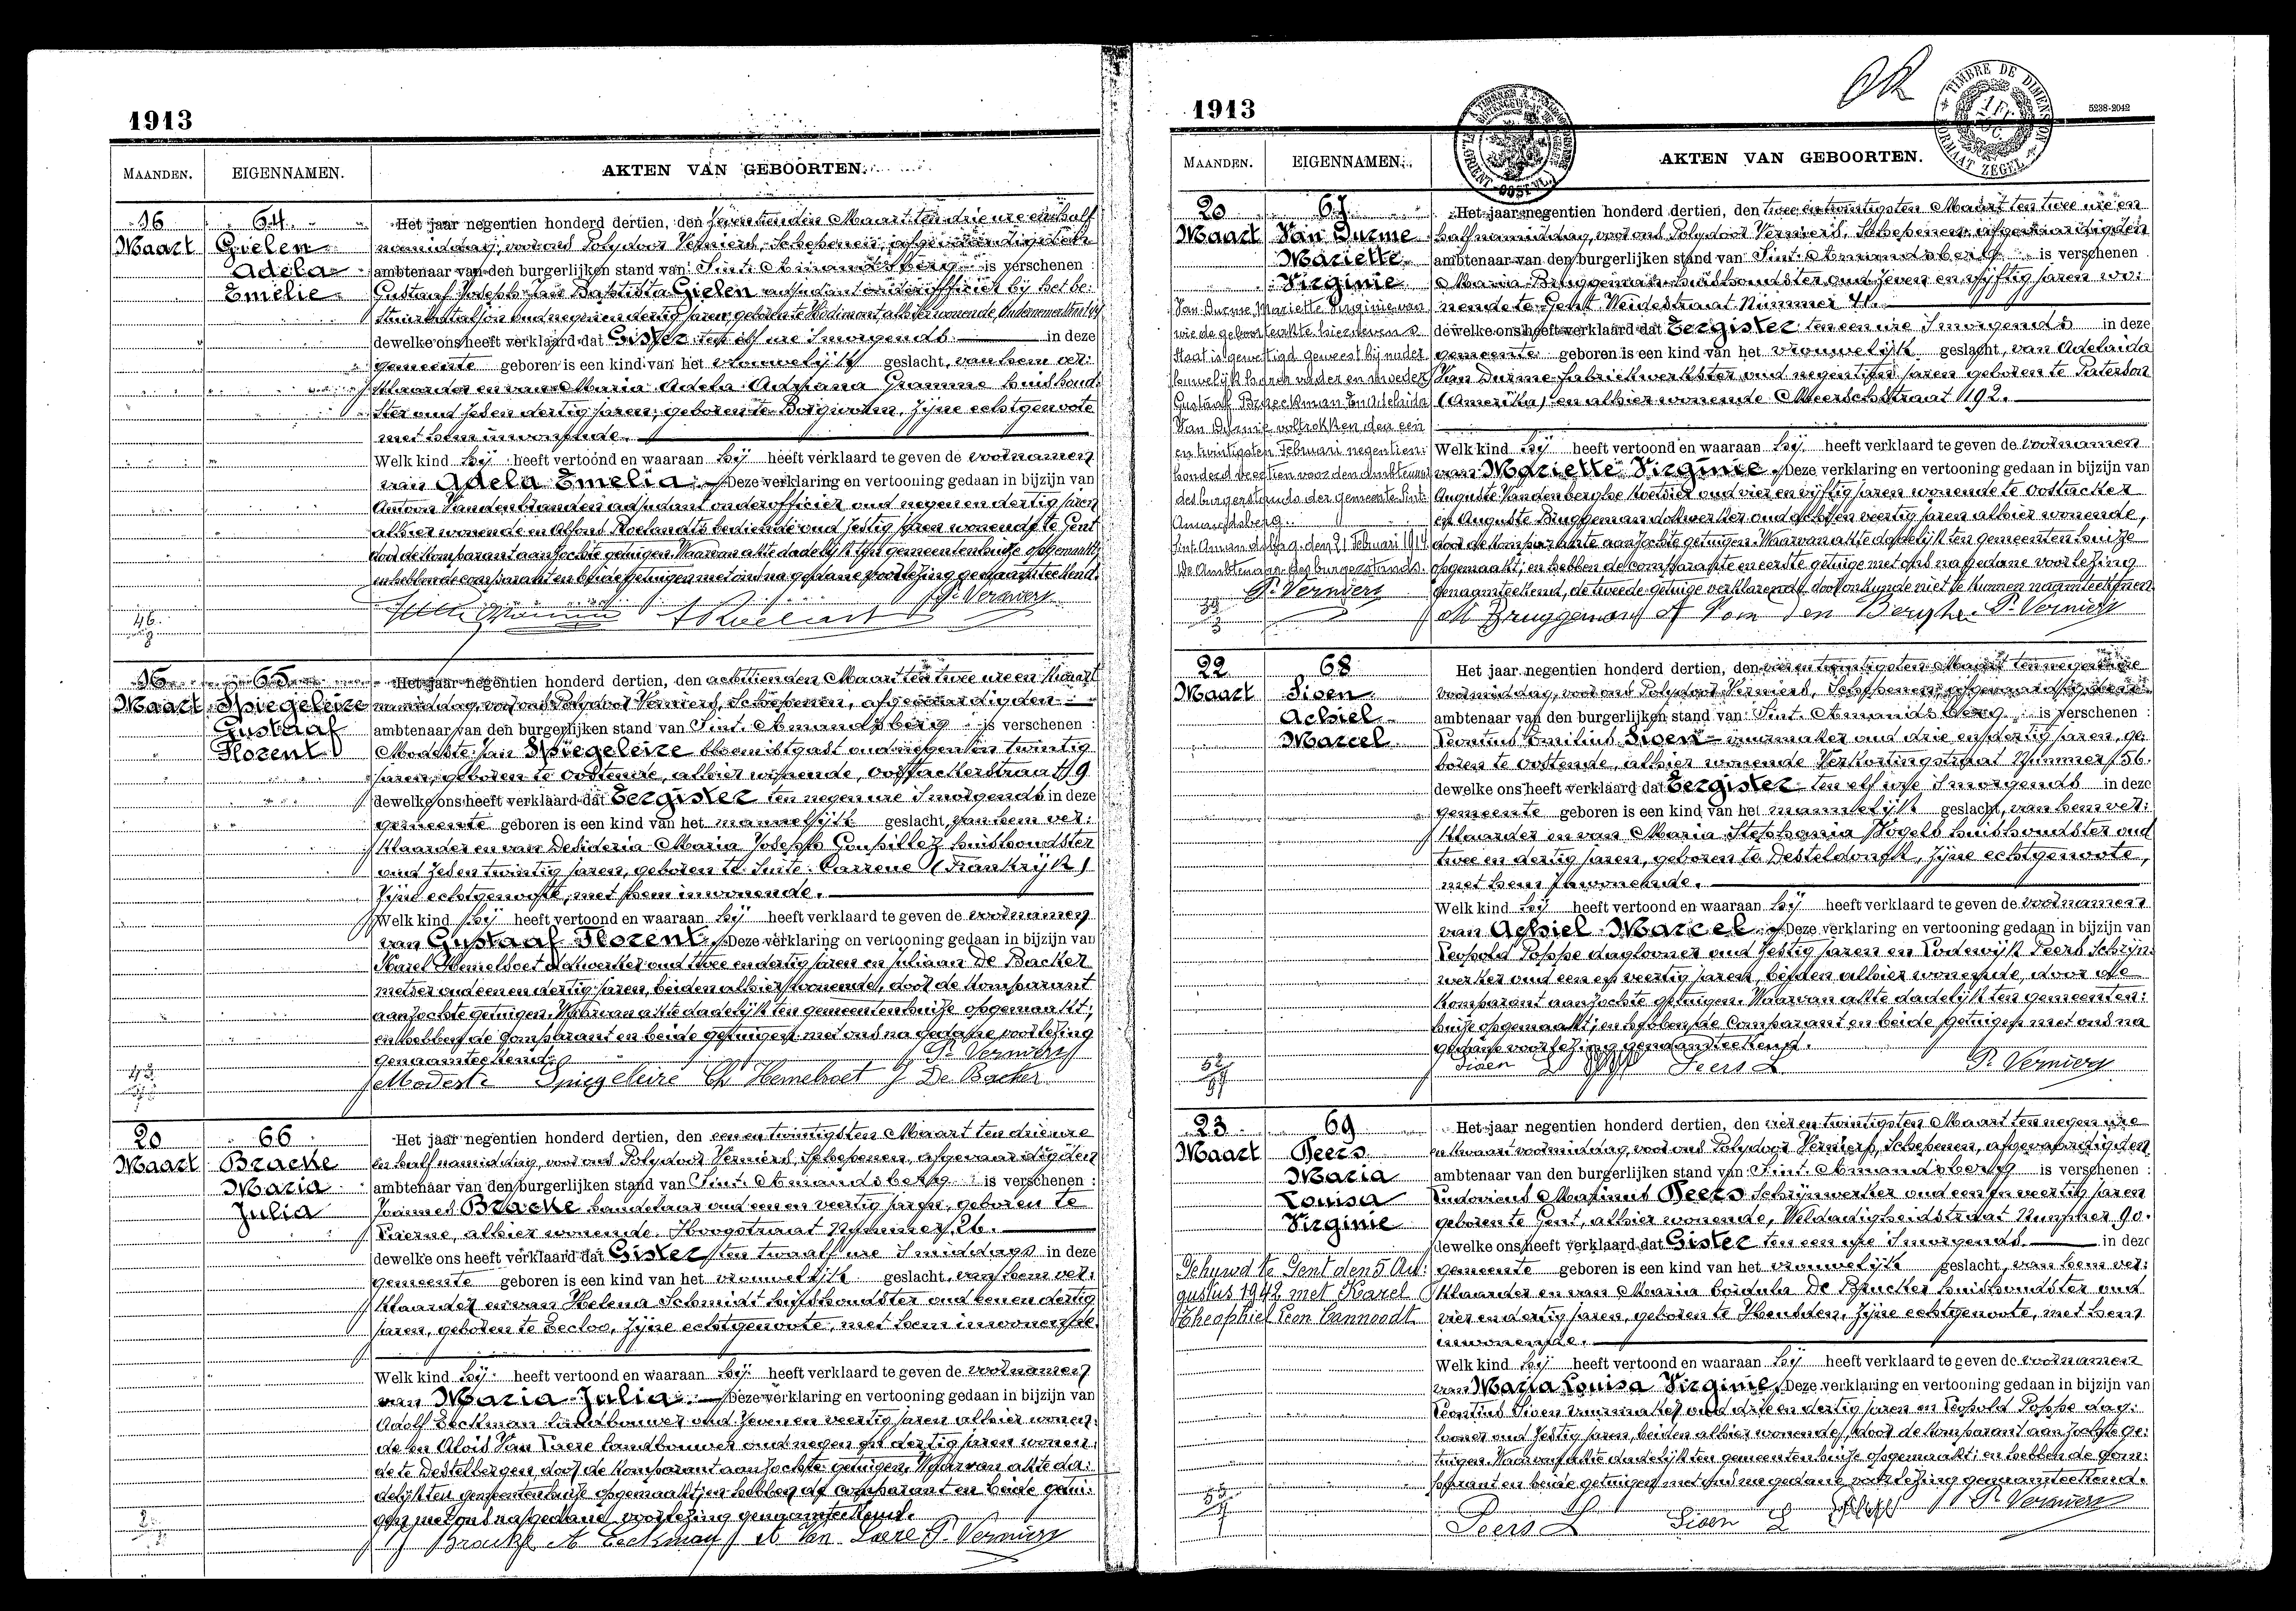 1913
MAANDEN. EIGENNAMEN. AKTEN VAN GEBOORTEN.
16 64. Het jaar negentien honderd dertien, den zeventienden Maart ten drie ure en half
Maart Gielen namiddag, voor ons Polydoor Verniers, Schepenen, afgevaardigden
Adela ambtenaar van den burgerlijken stand van Sint-Amandsberg is verschenen :
Emelie Gustaaf Joseph Jan Baptista Gielen adjudant onderofficier bij het be-
jaren, geboren te Hodimont, alhier wonende,
dewelke ons heeft verklaard dat Gister ten elf ure 's morgends in deze
gemeente geboren is een kind van het vrouwelijk geslacht, van hem ver-
klaarder en van Maria Adela Adriana Gramme huishoud-
ster oud zes en dertig jaren, geboren te Borgworm, zijne echtgenoote
met hem inwonende.
Welk kind hij heeft vertoond en waaraan hij heeft verklaard te geven de voornamen
van Adela Emelia. Deze verklaring en vertooning gedaan in bijzijn van
Antoon Vandenbranden adjudant onderofficier oud negen en dertig jaren
alhier wonende en Alfons Roelandts bediende oud zestig jaren wonende te Gent
door de komparant aanzochte getuigen. Waarvan akte dadelijk ten gemeentenhuize opgemaakt;
en hebben de comparant en beide getuigen met ons na gedane voorlezing genaamteekend.
P. Verniers
46.
16 65 Het jaar negentien honderd dertien, den achttienden Maart ten twee ure en kwart
Maart Spiegeleire namiddag, voor ons Polydoor Verniers, Schepenen, afgevaardigden
Gustaaf ambtenaar van den burgerlijken stand van Sint-Amandsberg is verschenen :
Florent Modeste Jan Spiegeleire bloemistgast oud negen en twintig
jaren, geboren te Oostende, alhier wonende, Oostackerstraat 19
dewelke ons heeft verklaard dat Eergister ten negen ure 's morgends in deze
gemeente geboren is een kind van het mannelijk geslacht, van hem ver-
klaarder en van Desideria Maria Joseph Goupillez huishoudster
oud zes en twintig jaren, geboren te (Frankrijk)
zijne echtgenoote, met hem inwonende.
Welk kind hij heeft vertoond en waaraan hij heeft verklaard te geven de voornamen
van Gustaaf Florent. Deze verklaring en vertooning gedaan in bijzijn van
Karel Hemelsoet dokwerker oud twee en dertig jaren en Juliaan De Backer
metser oud een en dertig jaren, beiden alhier wonende, door de komparant
aanzochte getuigen. Waarvan akte dadelijk ten gemeentenhuize opgemaakt;
en hebben de comparant en beide getuigen met ons na gedane voorlezing
genaamteekend. P. Verniers
Modeste Spiegeleire Ch Hemelsoet J De Backer
20 66 Het jaar negentien honderd dertien, den een en twintigsten Maart ten drie ure
Maart Bracke en half namiddag, voor ons Polydoor Verniers, Schepenen, afgevaardigden
Maria ambtenaar van den burgerlijken stand van Sint-Amandsberg is verschenen :
Julia Joannes Bracke handelaar oud een en veertig jaren, geboren te
Vierne, alhier wonende Hoogstraat Nummer 26.
dewelke ons heeft verklaard dat Gister ten twaalf ure 's middags in deze
gemeente geboren is een kind van het vrouwelijk geslacht, van hem ver-
klaarder en van Helena Schmidt huishoudster oud een en dertig
jaren, geboren te Eecloo, zijne echtgenoote, met hem inwonende.
Welk kind hij heeft vertoond en waaraan hij heeft verklaard te geven de voornamen
van Maria Julia. Deze verklaring en vertooning gedaan in bijzijn van
Adolf Eeckman landbouwer oud zeven en veertig jaren alhier wonen-
de en Alois Van Laere landbouwer oud negen en dertig jaren wonen-
de te Destelbergen, door de komparant aanzochte getuigen. Waarvan akte da-
delijk ten gemeentenhuize opgemaakt; en hebben de comparant en beide getui-
gen met ons na gedane voorlezing genaamteekend.
J Bracke A Eeckman A Van Laere P. Verniers
1913 OK TIMBRE DE DIMENSION FORMAAT ZEGEL 5238-2042
MAANDEN. EIGENNAMEN. AKTEN VAN GEBOORTEN.
20 67. Het jaar negentien honderd dertien, den twee en twintigsten Maart ten twee ure en
Maart Van Durme half namiddag, voor ons Polydoor Verniers, Schepenen, afgevaardigden
Mariette ambtenaar van den burgerlijken stand van Sint-Amandsberg is verschenen :
Virginie Maria Bruggeman huishoudster oud zeven en vijftig jaren wo-
nende te Gent Weidestraat Nummer 41.
dewelke ons heeft verklaard dat Eergister ten een ure 's morgends in deze
gemeente geboren is een kind van het vrouwelijk geslacht, van Adelaida
Van Durme fabriekwerkster oud negentien jaren geboren te Paterson
(Amerika) en alhier wonende Meerschstraat 192.
Welk kind hij heeft vertoond en waaraan hij heeft verklaard te geven de voornamen
van Mariette Virginie. Deze verklaring en vertooning gedaan in bijzijn van
Auguste Vandenberghe koetsier oud vier en vijftig jaren wonende te Oostacker
en Auguste Bruggeman dokwerker oud acht en veertig jaren alhier wonende,
door de komparante aanzochte getuigen. Waarvan akte dadelijk ten gemeentenhuize
opgemaakt; en hebben de comparante en eerste getuige met ons na gedane voorlezing
genaamteekend, de tweede getuige verklarende door onkunde niet te kunnen naamteekenen.
M Bruggeman A Van Den Berghe P. Verniers
Van Durme Mariette Virginie van
wie de geboorteakte hierneven
staat is gewettigd geweest bij nader
houwelijk harer vader en moeder
Gustaaf Braeckman En Adelaida
Van Durme voltrokken den een
en twintigsten Februari negentien-
honderd veertien voor den Ambtenaar
des burgerstands der gemeente Sint-
Amandsberg.
Sint-Amandsberg, den 21 Februari 1914
De Ambtenaar des burgerstands.
P. Verniers
22 68 Het jaar negentien honderd dertien, den vier en twintigsten Maart ten negen ure
Maart Sioen voormiddag, voor ons Polydoor Verniers, Schepenen, afgevaardigden
Achiel ambtenaar van den burgerlijken stand van Sint-Amandsberg is verschenen :
Marcel Leontius Emilius Sioen vuurmaker oud drie en dertig jaren, ge-
boren te Oostende, alhier wonende Verkortingstraat Nummer 56.
dewelke ons heeft verklaard dat Eergister ten elf ure 's morgends in deze
gemeente geboren is een kind van het mannelijk geslacht, van hem ver-
klaarder en van Maria Stephania Vogels huishoudster oud
twee en dertig jaren, geboren te Desteldonck, zijne echtgenoote,
met hem inwonende.
Welk kind hij heeft vertoond en waaraan hij heeft verklaard te geven de voornamen
van Achiel Marcel. Deze verklaring en vertooning gedaan in bijzijn van
Leopold Poppe daglooner oud zestig jaren en Lodewijk Peers schrijn-
werker oud een en veertig jaren, beiden alhier wonende, door de
komparant aanzochte getuigen. Waarvan akte dadelijk ten gemeenten-
huize opgemaakt; en hebben de comparant en beide getuigen met ons na
gedane voorlezing genaamteekend.
Sioen L Peers L P. Verniers
23 69 Het jaar negentien honderd dertien, den vier en twintigsten Maart ten negen ure
Maart Peers en kwart voormiddag, voor ons Polydoor Verniers, Schepenen, afgevaardigden
Maria ambtenaar van den burgerlijken stand van Sint-Amandsberg is verschenen :
Louisa Ludovicus Maximus Peers schrijnwerker oud een en veertig jaren
Virginie geboren te Gent, alhier wonende, Weldadigheidstraat Nummer 90.
dewelke ons heeft verklaard dat Gister ten een ure 's morgends in deze
gemeente geboren is een kind van het vrouwelijk geslacht, van hem ver-
klaarder en van Maria Coidula De Brucker huishoudster oud
vier en dertig jaren, geboren te Heusden, zijne echtgenoote, met hem
inwonende.
Gehuwd te Gent den 5 Au-
gustus 1942 met Karel
Theophiel Leon Cannoodt
Welk kind hij heeft vertoond en waaraan hij heeft verklaard te geven de voornamen
van Maria Louisa Virginie. Deze verklaring en vertooning gedaan in bijzijn van
Leontius Sioen vuurmaker oud drie en dertig jaren en Leopold Poppe dag-
looner oud zestig jaren, beiden alhier wonende, door de komparant aanzochte ge-
tuigen. Waarvan akte dadelijk ten gemeentenhuize opgemaakt; en hebben de com-
parant en beide getuigen met ons na gedane voorlezing genaamteekend.
Peers L Sioen L P. Verniers